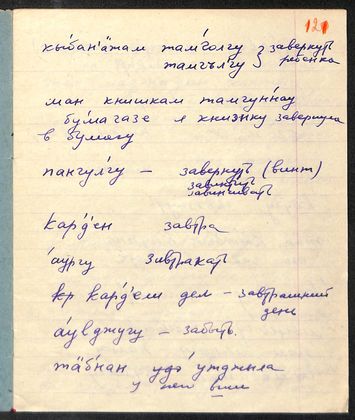 121
хы́бан'ӓтам тамго́лгу } завернуть
тамгъл́гу } ребенка
ман книшкам тамгунна́у
бума́газе я книжку завернула
в бумагу
пангул́гу — завернуть (винт)
завинтить
завинчивать
кар́д'ен завтра
а́ургу завтракать
кар́д'ел дел — завтрашний
день
а́улджугу — забыть.
тӓбнан удэ́ утджыла
у него вши